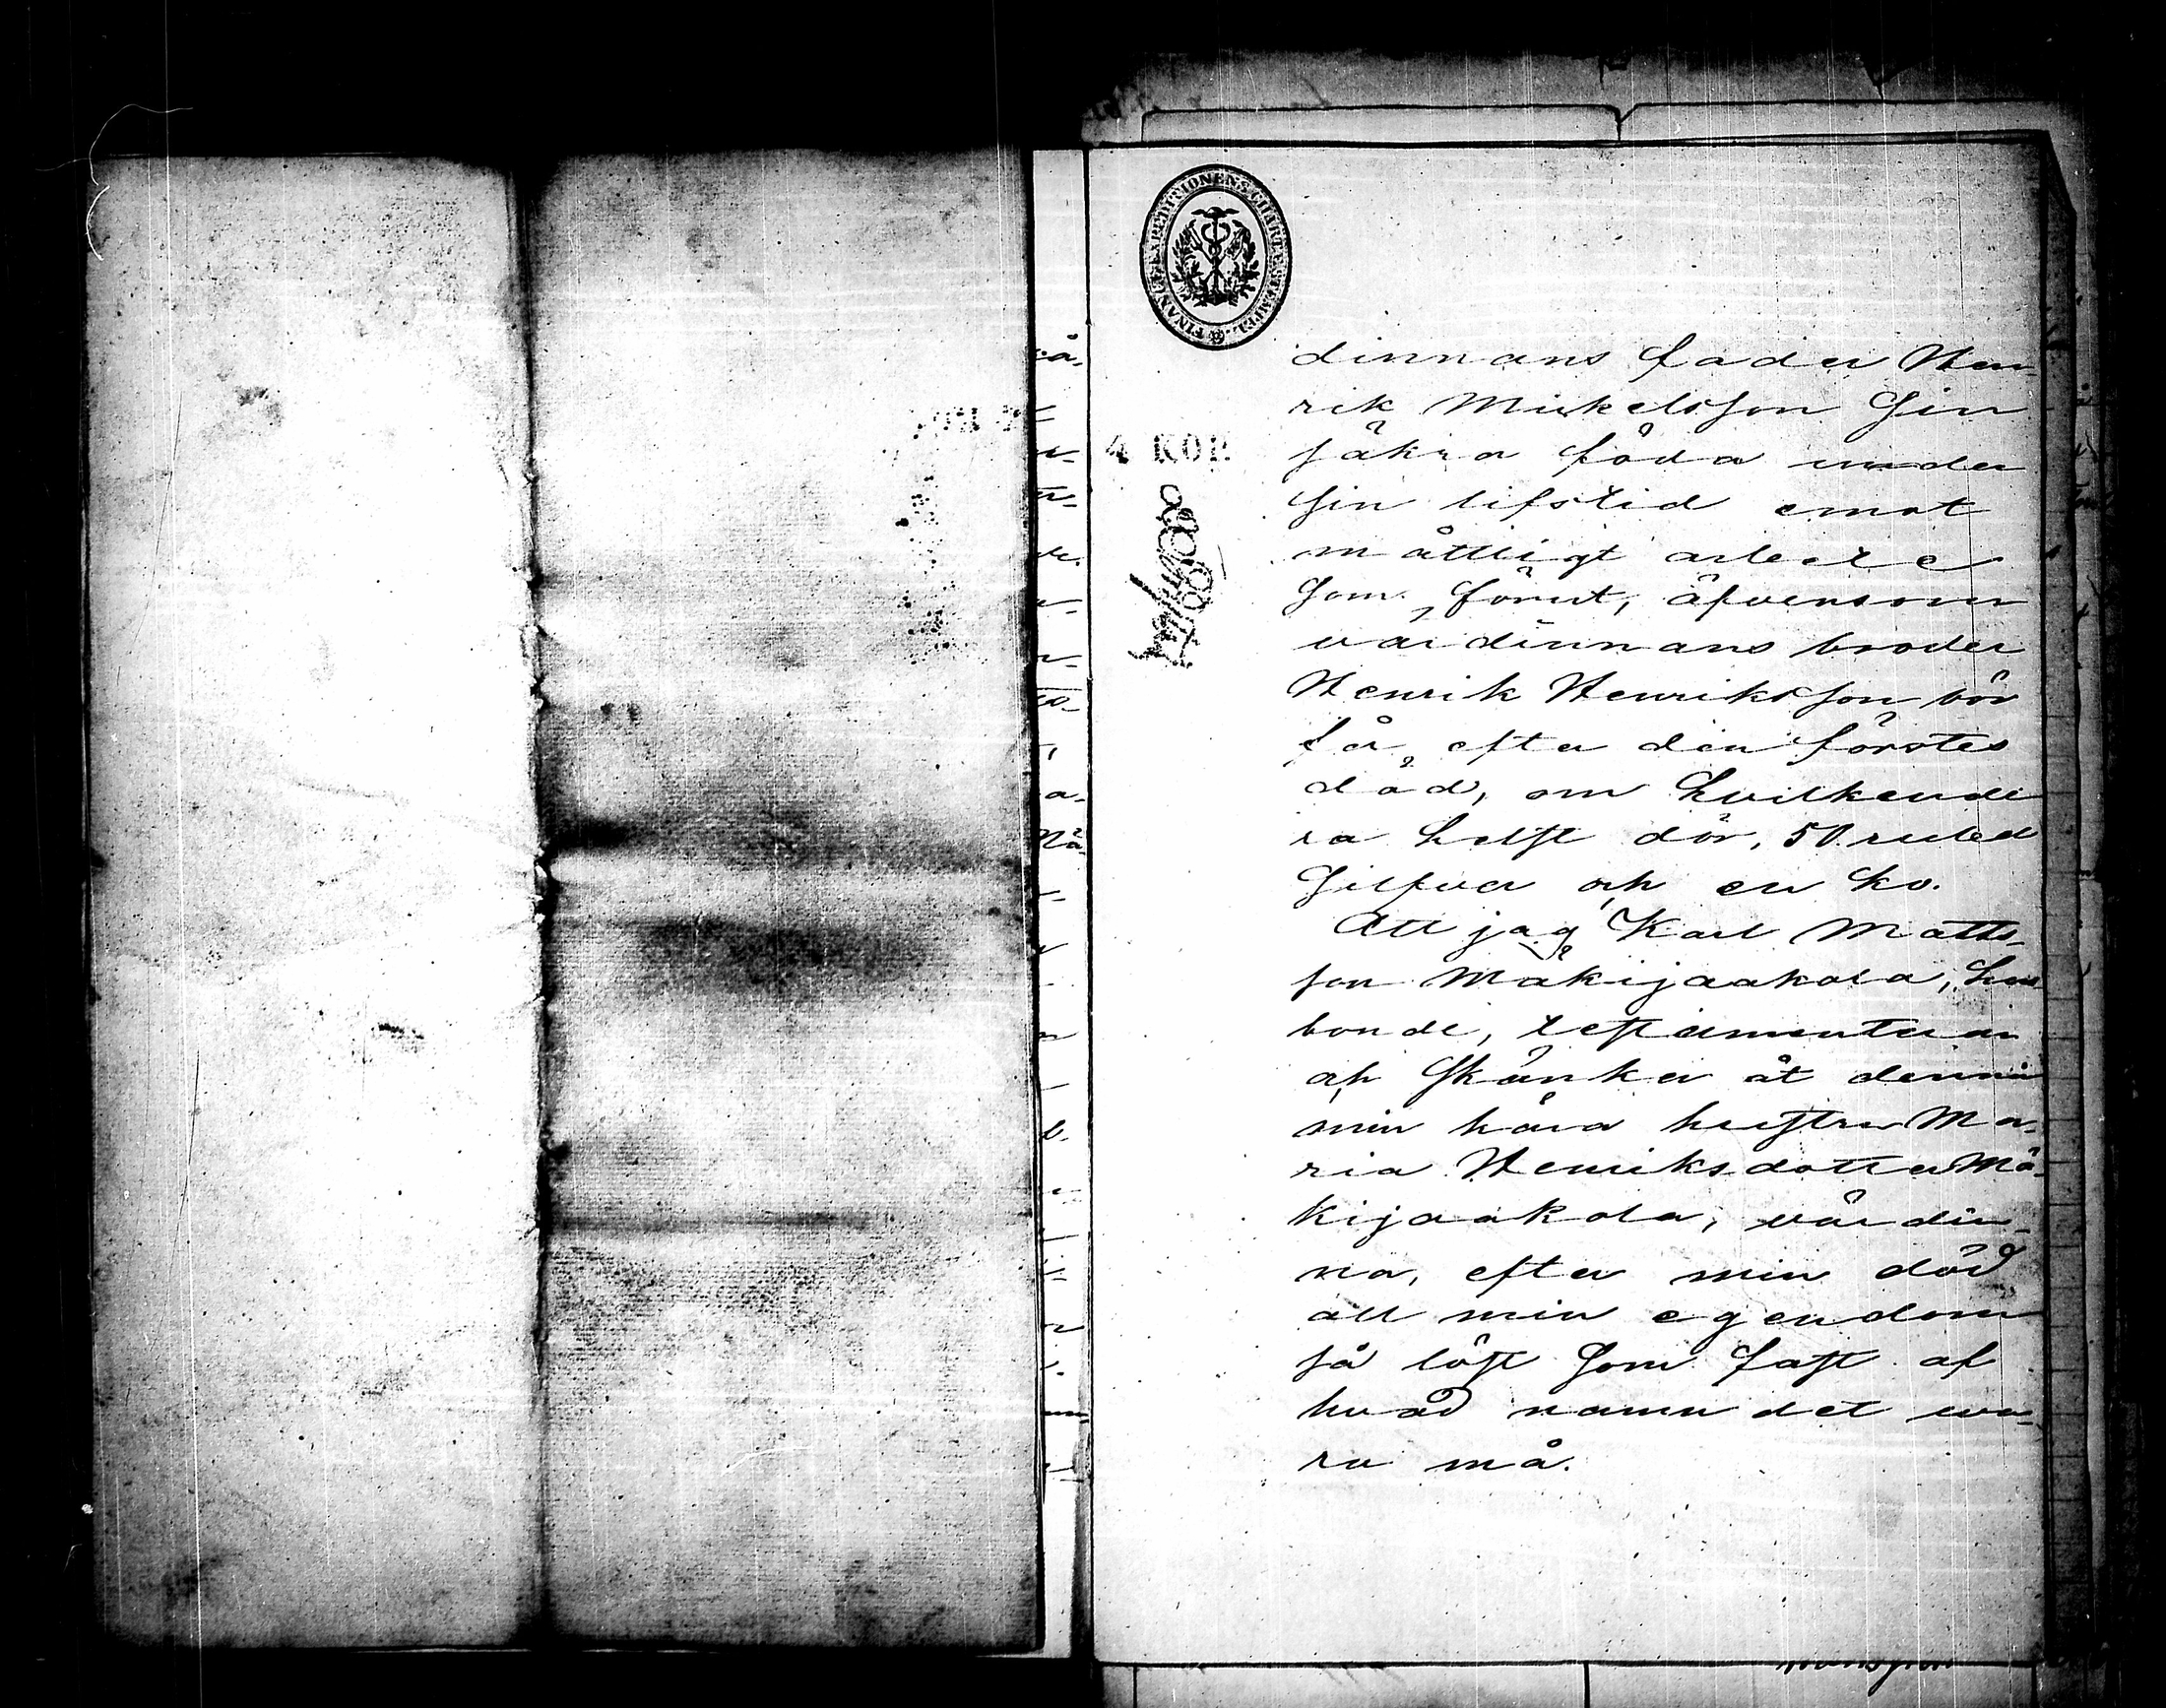 FINANCE EXPEDITIONENS CHARTÆ STEMPEL
4 KOP.
dinnans fader Hen-
rik Mickelsson sin
säkra föda under
sin lifstid emot
måttligt arbete
som förut, äfvensom
värdinnans broder
Henrik Henriksson bör
få, efter den förstes
död, om hvilkende
ra helst dör, 50 rubel
silfver och en ko.
Att jag Karl Matts-
son Mäkijaakola, hus
bonde, testamenterar
och skänker åt denna
min kära hustru Ma-
ria Henriksdotter Mä-
kijaakola, värdin-
na, efter min död
all min egendom
så löst som fast af
hvad namn det va-
ra må.